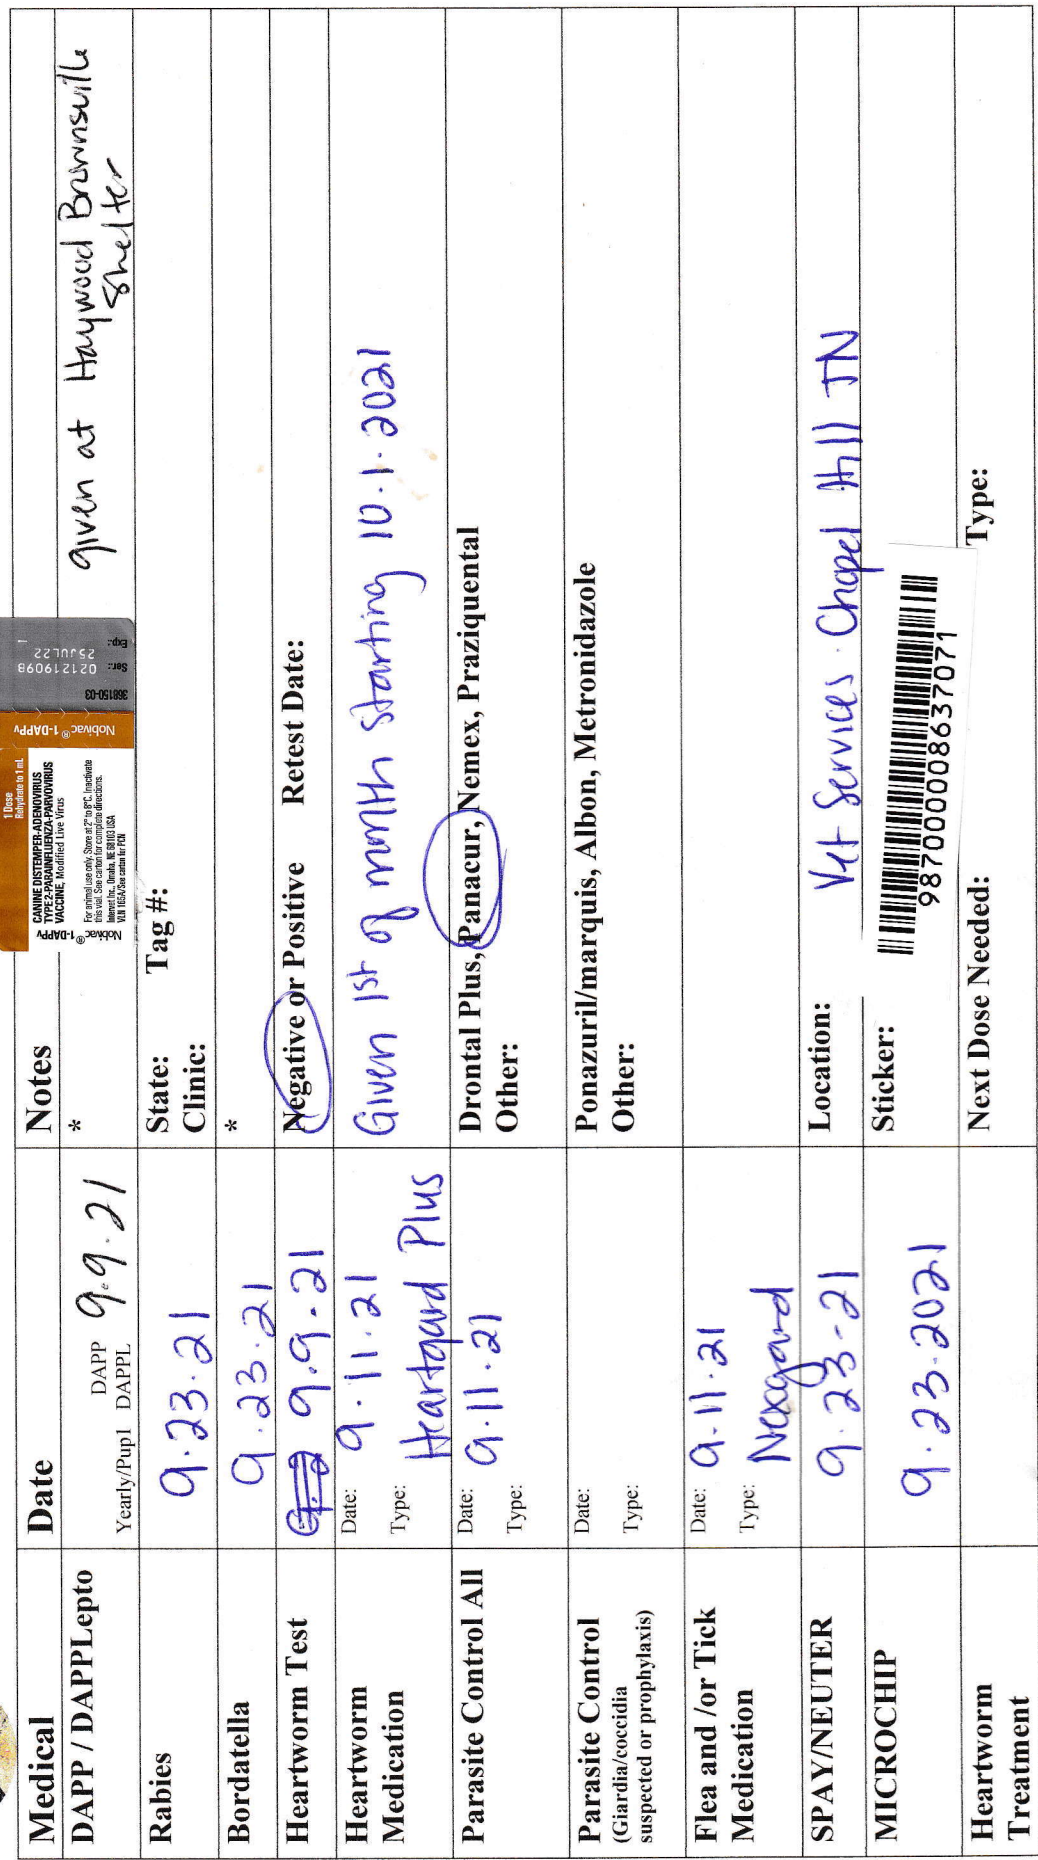 Medical Date Notes
DAPP / DAPPLepto
DAPP
Yearly/Pup1 DAPPL 9.9.21
*
given at Haywood Brownsville
Shelter
1 Dose
Rehydrate to 1 mL
Nobivac® 1-DAPPv
CANINE DISTEMPER-ADENOVIRUS
TYPE 2-PARAINFLUENZA-PARVOVIRUS
VACCINE, Modified Live Virus
For animal use only. Store at 2° to 8°C. Inactivate
this vial. See carton for complete directions.
Intervet Inc., Omaha, NE 68103 USA
VLN 165A/See carton for PCN
Nobivac® 1-DAPPv
368150-03
Ser: 02121909B
Exp: 25JUL22
Rabies
9.23.21
State: Tag #:
Clinic:
Bordatella
9.23.21
*
Heartworm Test
9.9.21
Negative or Positive Retest Date:
Heartworm
Medication
Date: 9.11.21
Type: Heartgard Plus
Given 1st of month starting 10.1.2021
Parasite Control All
Date: 9.11.21
Type:
Drontal Plus, Panacur, Nemex, Praziquental
Other:
Parasite Control
(Giardia/coccidia
suspected or prophylaxis)
Date:
Type:
Ponazuril/marquis, Albon, Metronidazole
Other:
Flea and /or Tick
Medication
Date: 9.11.21
Type: Nexgard
SPAY/NEUTER
9.23-21
Location: Vet Services Chapel Hill TN
MICROCHIP
9.23.2021
Sticker:
987000008637071
Heartworm
Treatment
Next Dose Needed: Type: